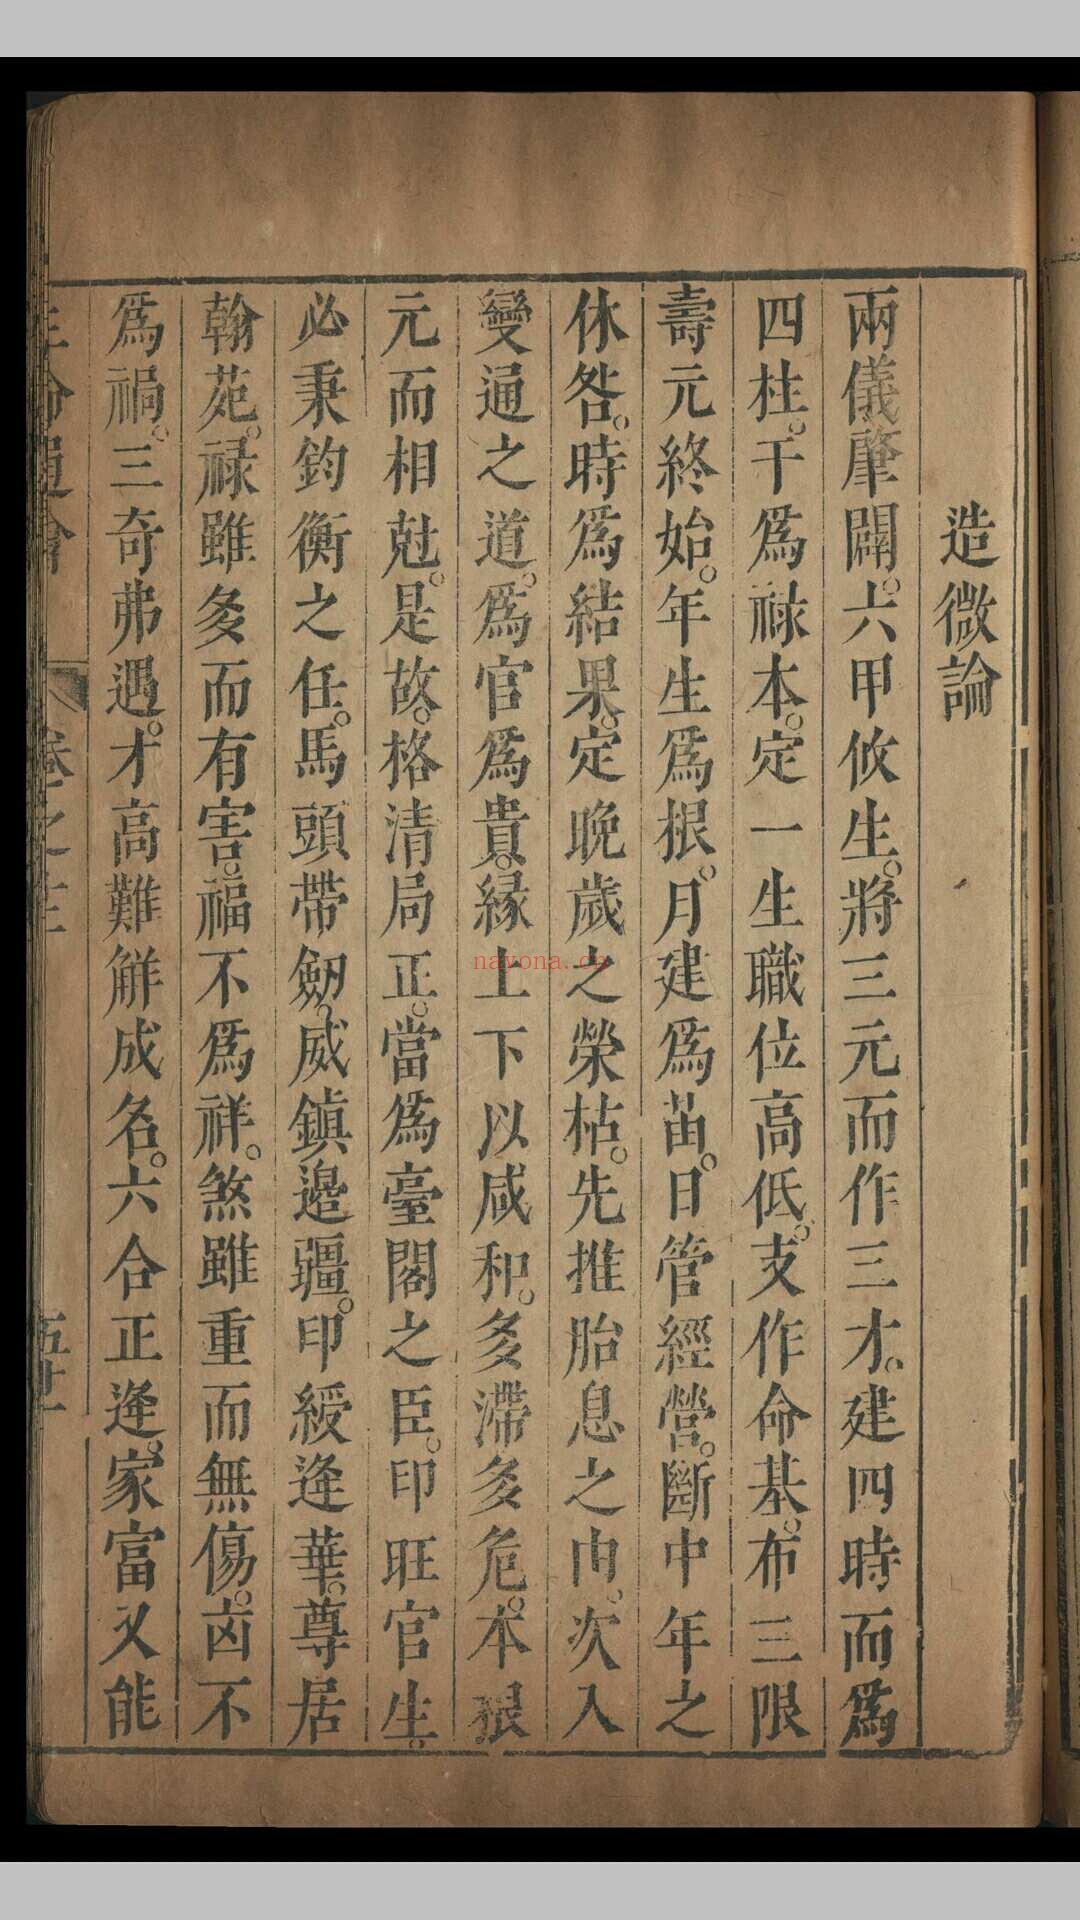 造微論
兩儀肇闢。六甲攸生。將三元而作三才。建四時而爲
四柱。干爲祿本。定一生職位高低。支作命基。布三限
壽元終始。年生爲根。月建爲苗。日管經營。斷中年之
休咎。時爲結果。定晚歲之榮枯。先推胎息之由。次入
變通之道。爲官爲貴。縁上下以咸和。多滯多危。本根
元而相尅。是故。格清局正。當爲臺閣之臣。印旺官生。
必秉鈞衡之任。馬頭帶劒。威鎮邉疆。印綬逢華。尊居
翰苑。禄雖多而有害。福不爲祥。煞雖重而無傷。凶不
爲禍。三奇弗遇。才高難觧成名。六合正逢。家富又能
三命通會
卷之
nayona.cn